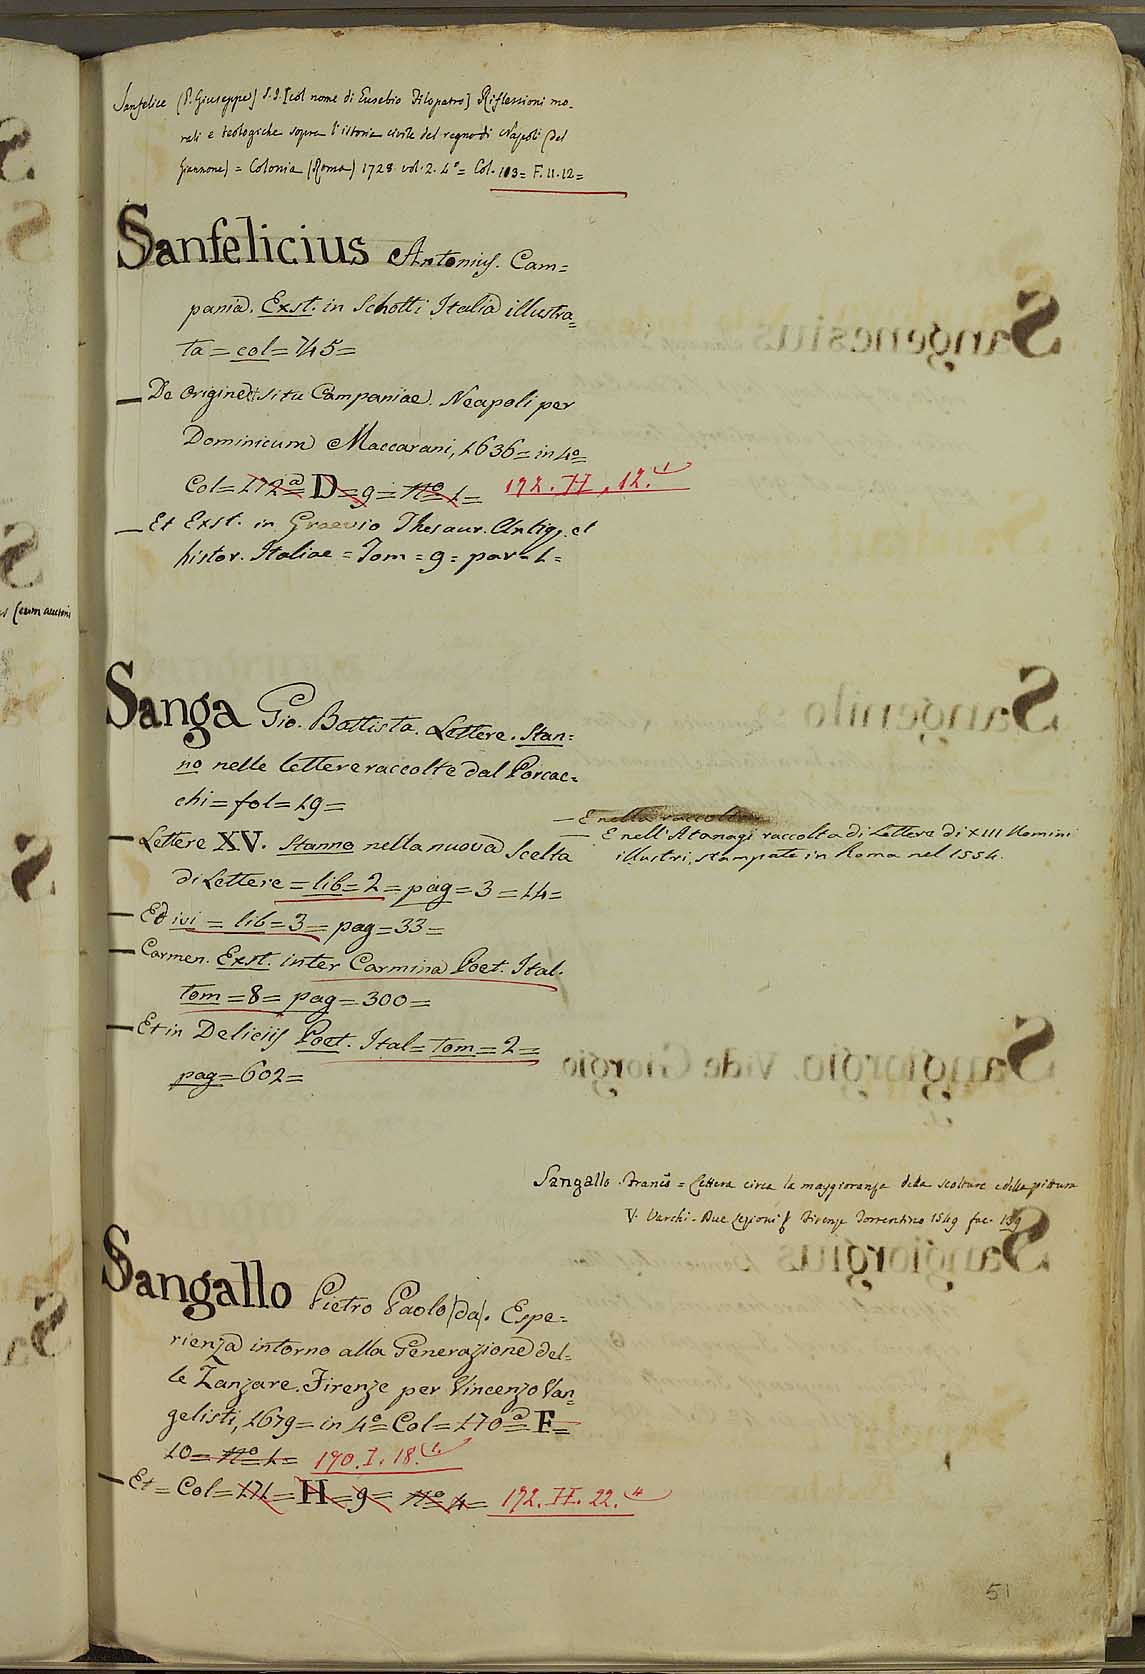 Sanfelice (P. Giuseppe) S.I. [col nome di Eusebio Filopatro] Riflessioni mo-
rali e teologiche sopra l'istoria civile del regno di Napoli (del
Giannone) = Colonia (Roma) 1728 vol. 2. 4º = Col. 103 = F. 11. 12 =
Sanfelicius Antonius. Cam=
pania. Exst. in Schotti Italia illustra=
ta = col = 745 =
— De Origine et situ Campaniae. Neapoli per
Dominicum Maccarani, 1636 = in 4º =
Col = 172ª = D = 9 = nº 1 = 192. H, 12.1
— Et Exst. in Graevio Thesaur. Antiq. et
histor. Italiae = Tom = 9 = par = 1 =
Sanga Gio. Battista. Lettere. Stan=
no nelle lettere raccolte dal Porcac=
chi = fol = 19 =
— E nella raccolta
— E nell'Atanagi raccolta di Lettere di XIII Uomini
illustri, stampate in Roma nel 1554.
— Lettere XV. Stanno nella nuova Scelta
di Lettere = lib = 2 = pag = 3 = 14 =
— Ed ivi = lib = 3 = pag = 33 =
— Carmen. Exst. inter Carmina Poet. Ital.
tom = 8 = pag = 300 =
— Et in Deliciis Poet. Ital = tom = 2 =
pag = 602 =
Sangallo Franco = Lettera circa la maggioranza della scolture e della pittura
V. Varchi. Due Lezioni Firenze Torrentino 1549 fac. 139
Sangallo Pietro Paolo (da). Espe=
rienza intorno alla Generazione del=
le Zanzare. Firenze per Vincenzo Van=
gelisti, 1679 = in 4º = Col = 170ª = F =
10 = nº 1 = 190. I. 18.1
— Et = Col = 171 = H = 9 = nº 4 = 192. H. 22.4
51